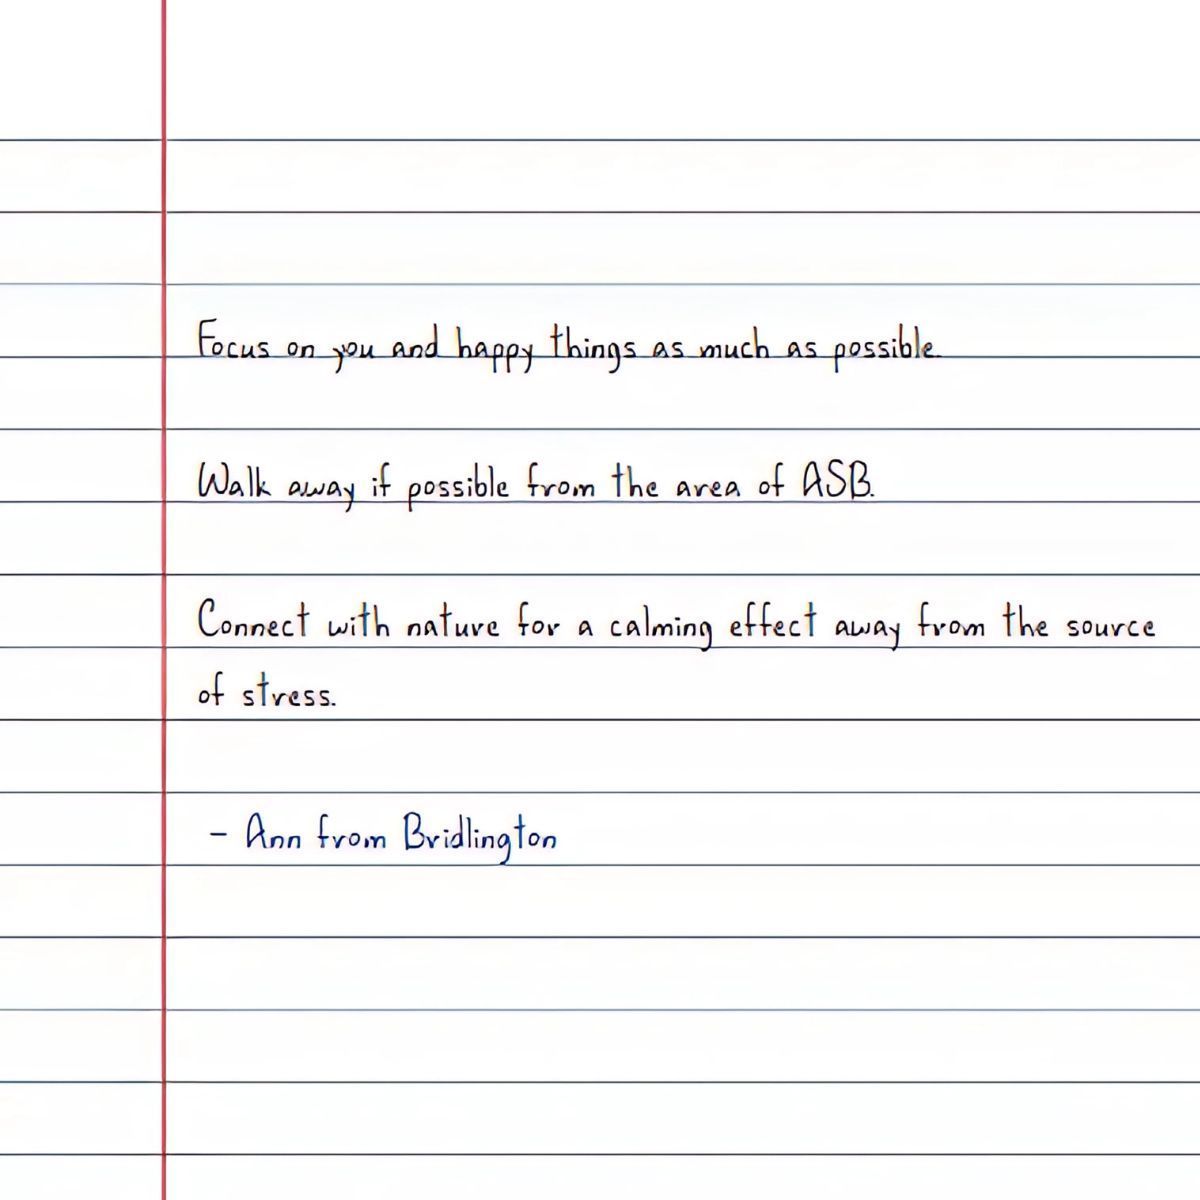 Focus on you and happy things as much as possible.
Walk away if possible from the area of ASB.
Connect with nature for a calming effect away from the source
of stress.
- Ann from Bridlington